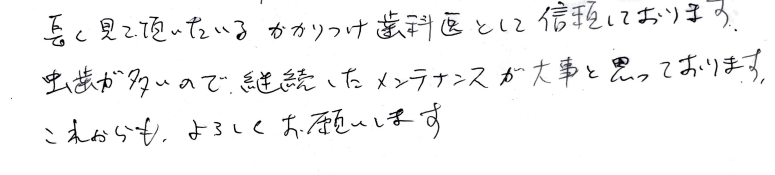 長く見て頂いているかかりつけ歯科医として信頼しております.
虫歯が多いので.継続したメンテナンスが大事と思っております.
これからも.よろしくお願いします